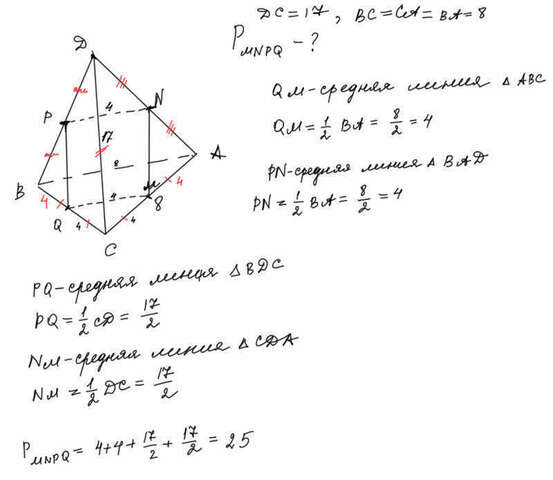 DC=17, BC=CA=BA=8
P MNPQ - ?
QM-средняя линия △ ABC
QM=1/2 BA= 8/2 =4
PN-средняя линия △ BAD
PN=1/2 BA= 8/2 =4
D
P
4
N
17
8
A
B
4
4
M
8
4
Q
4
4
C
PQ-средняя линия △ BDC
PQ=1/2 CD= 17/2
NM-средняя линия △ CDA
NM=1/2 DC= 17/2
P MNPQ= 4+4+ 17/2 + 17/2 =25